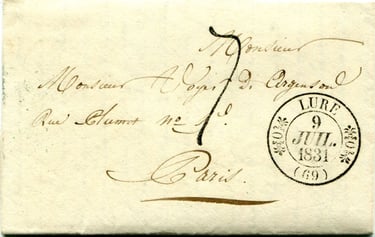 Monsieur
Monsieur Voyer de Argenson
Rue Plumet nº 1 d.
Paris.
7
LURE
9
JUIL.
1831
(69)